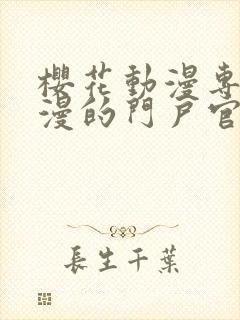 櫻花動漫專
漫的門戶官
長生千葉